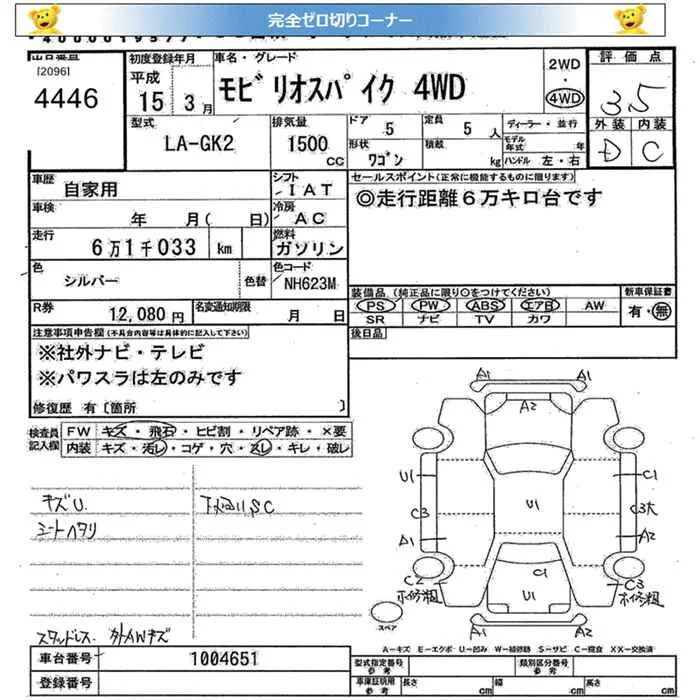 完全ゼロ切りコーナー
出品番号
[2096]
4446
初度登録年月
平成
15 3月
車名・グレード
モビリオスパイク 4WD
2WD
・
4WD
評価点
3.5
外装 内装
D C
型式
LA-GK2
排気量
1500
CC
ドア 5
形状 ワゴン
定員 5 人
積載 kg
ディーラー・並行
モデル年式 年
ハンドル 左・右
車歴
自家用
シフト
IAT
車検
年 月( 日)
冷房
AC
走行
6万1千033 km
燃料
ガソリン
色
シルバー
色替
色コード
NH623M
セールスポイント(正常に機能するものに限ります)
◎走行距離6万キロ台です
R券
12,080円
名変通知期限
月 日
装備品 (純正品に限り○をつけてください)
PS PW ABS エアB AW
SR ナビ TV カワ
新車保証書
有・無
後日品
注意事項申告欄(不具合内容等は具体的に記入して下さい)
※社外ナビ・テレビ
※パワスラは左のみです
修復歴 有〔箇所 〕
検査員記入欄
FW キズ・飛石・ヒビ割・リペア跡・×要
内装 キズ・汚レ・コゲ・穴・スレ・キレ・破レ
キズU.
シートヘタリ
スタッドレス. 外AWキズ
A1 A1
A2
U1 C1
U1
C3 C3大
A1 A2
C1
C2 C3
ホ修粗 U1 ホ修粗
スペア
A―キズ E―エクボ U―凹み W―補修跡 S―サビ C―腐食 XX―交換済
車台番号
1004651
登録番号
型式指定番号
参考
類別区分番号
参考
車庫証明用
参考
長さ cm 幅 cm 高さ cm